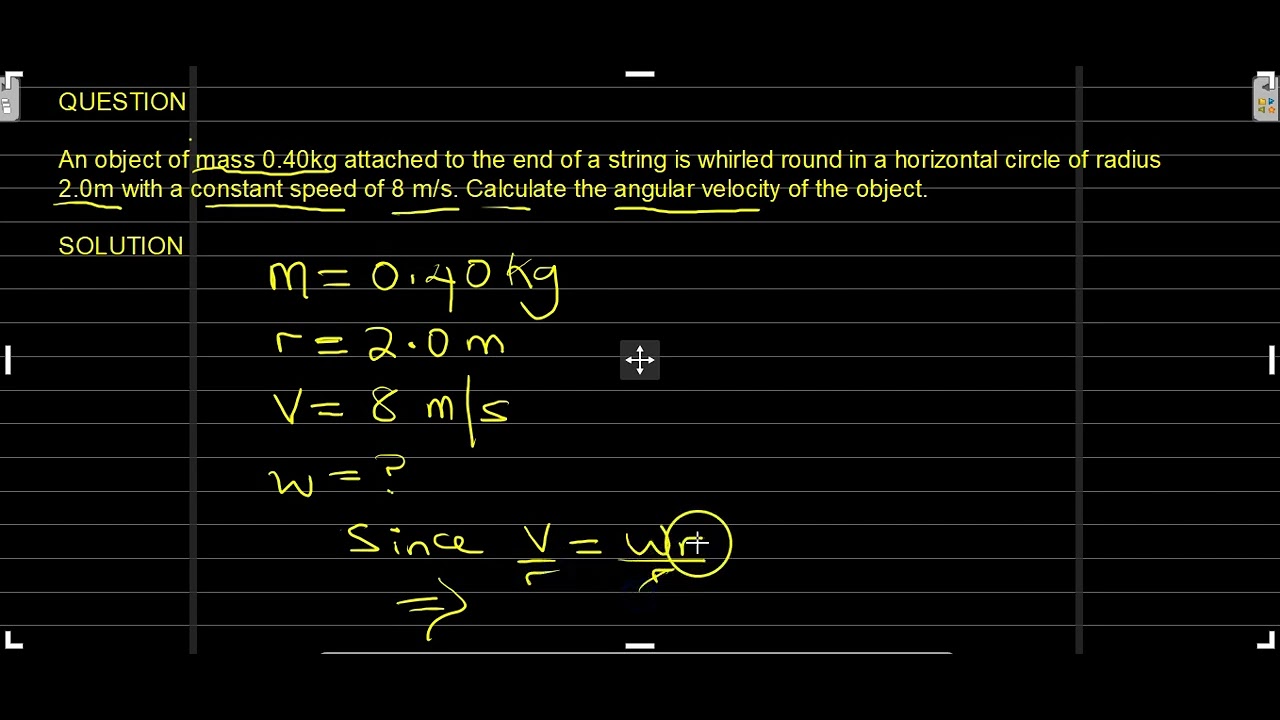 QUESTION
An object of mass 0.40kg attached to the end of a string is whirled round in a horizontal circle of radius
2.0m with a constant speed of 8 m/s. Calculate the angular velocity of the object.
SOLUTION
m = 0.40 kg
r = 2.0 m
V = 8 m/s
w = ?
Since V/r = wr/r
⇒